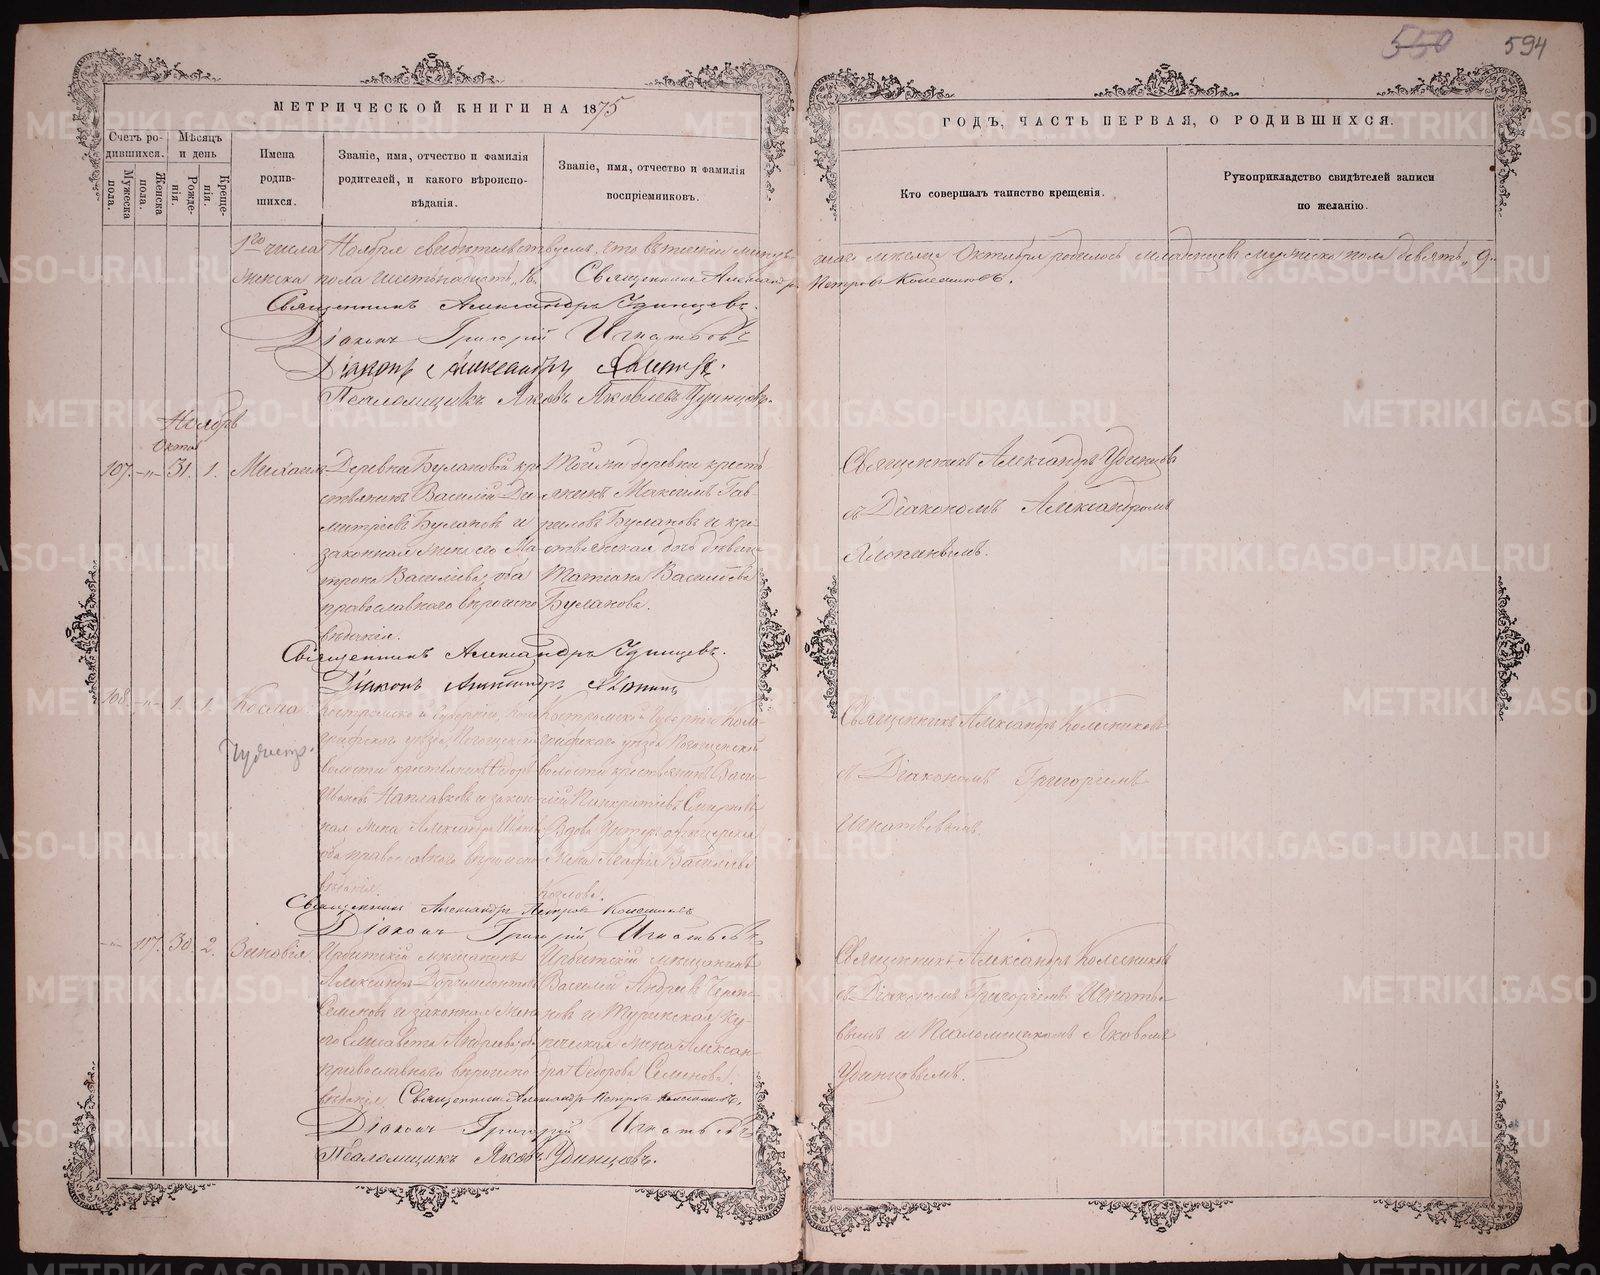 550 594
МЕТРИЧЕСКОЙ КНИГИ НА 1875
ГОДЪ, ЧАСТЬ ПЕРВАЯ, О РОДИВШИХСЯ.
Счетъ ро-
дившихся.
Мужеска
пола.
Женска
пола.
Мѣсяцъ
и день
Рожде-
нія.
Креще-
нія.
Имена
родив-
шихся.
Званіе, имя, отчество и фамилія
родителей, и какого вѣроиспо-
вѣданія.
Званіе, имя, отчество и фамилія
воспріемниковъ.
Кто совершалъ таинство крещенія.
Рукоприкладство свидѣтелей записи
по желанію.
1го числа Ноября свидѣтельствуемъ, что въ теченіи минув-
шаго мѣсяца Октября родилось младенцевъ мужеска пола девять „9„
женска пола шестьнадцать „16„ Священникъ Александръ
Петровъ Колесниковъ.
Священникъ Александръ Удинцевъ.
Діаконъ Григорій Игнатьевъ
Діаконъ Александръ
Псаломщикъ Яковъ Яковлевъ Удинцовъ.
Ноябрь
Октяб
107. -„- 31. 1. Михаилъ
Деревни Булановой кре-
стьянинъ Василій Ди-
митріевъ Булановъ и
законная жена его Ма-
трона Васильева, оба
православнаго вѣроиспо
вѣданія.
Тойже деревни кресть-
янинъ Максимъ Гав-
риловъ Булановъ и кре-
стьянская дочь дѣвица
Татіана Васильева
Буланова.
Священникъ Александръ Удинцовъ
съ Діакономъ Александромъ
Священникъ Александръ Удинцевъ.
Діаконъ Александръ
108. -„- 1. 1. Косма
Костромской Губерніи, Коло
гривскаго уѣзда,
волости крестьянинъ Ѳедоръ
Ивановъ Наплавковъ и закон-
ная жена Александра Иванова
оба православнаго вѣроиспо
вѣданія.
Костромской Губерніи Коло-
гривскаго уѣзда
волости крестьянинъ Васи-
лій Панкратіевъ Смирновъ
Вдова Унтеръ офицерская
жена Агафія Васильева
Козлова.
Священникъ Александръ Колесниковъ
съ Діакономъ Григоріемъ
Игнатьевымъ.
Священникъ Александръ Петровъ Колесниковъ
Діаконъ Григорій Игнатьевъ
-„- 117. 30. 2. Зиновія.
Ирбитскій мѣщанинъ
Александръ
Семеновъ и законная жена
его Елисавета Андреева, оба
православнаго вѣроиспо
вѣданія.
Ирбитскій мѣщанинъ
Василій Андреевъ Черепа-
новъ и Туринская ку-
печеская жена Алексан-
дра Ѳедорова Семенова.
Священникъ Александръ Колесниковъ
съ Діакономъ Григоріемъ Игнатье-
вымъ и Псаломщикомъ Яковомъ
Удинцовымъ.
Священникъ Александръ Петровъ Колесниковъ.
Діаконъ Григорій Игнатьевъ
Псаломщикъ Яковъ Удинцовъ.
METRIKI.GASO-URAL.RU